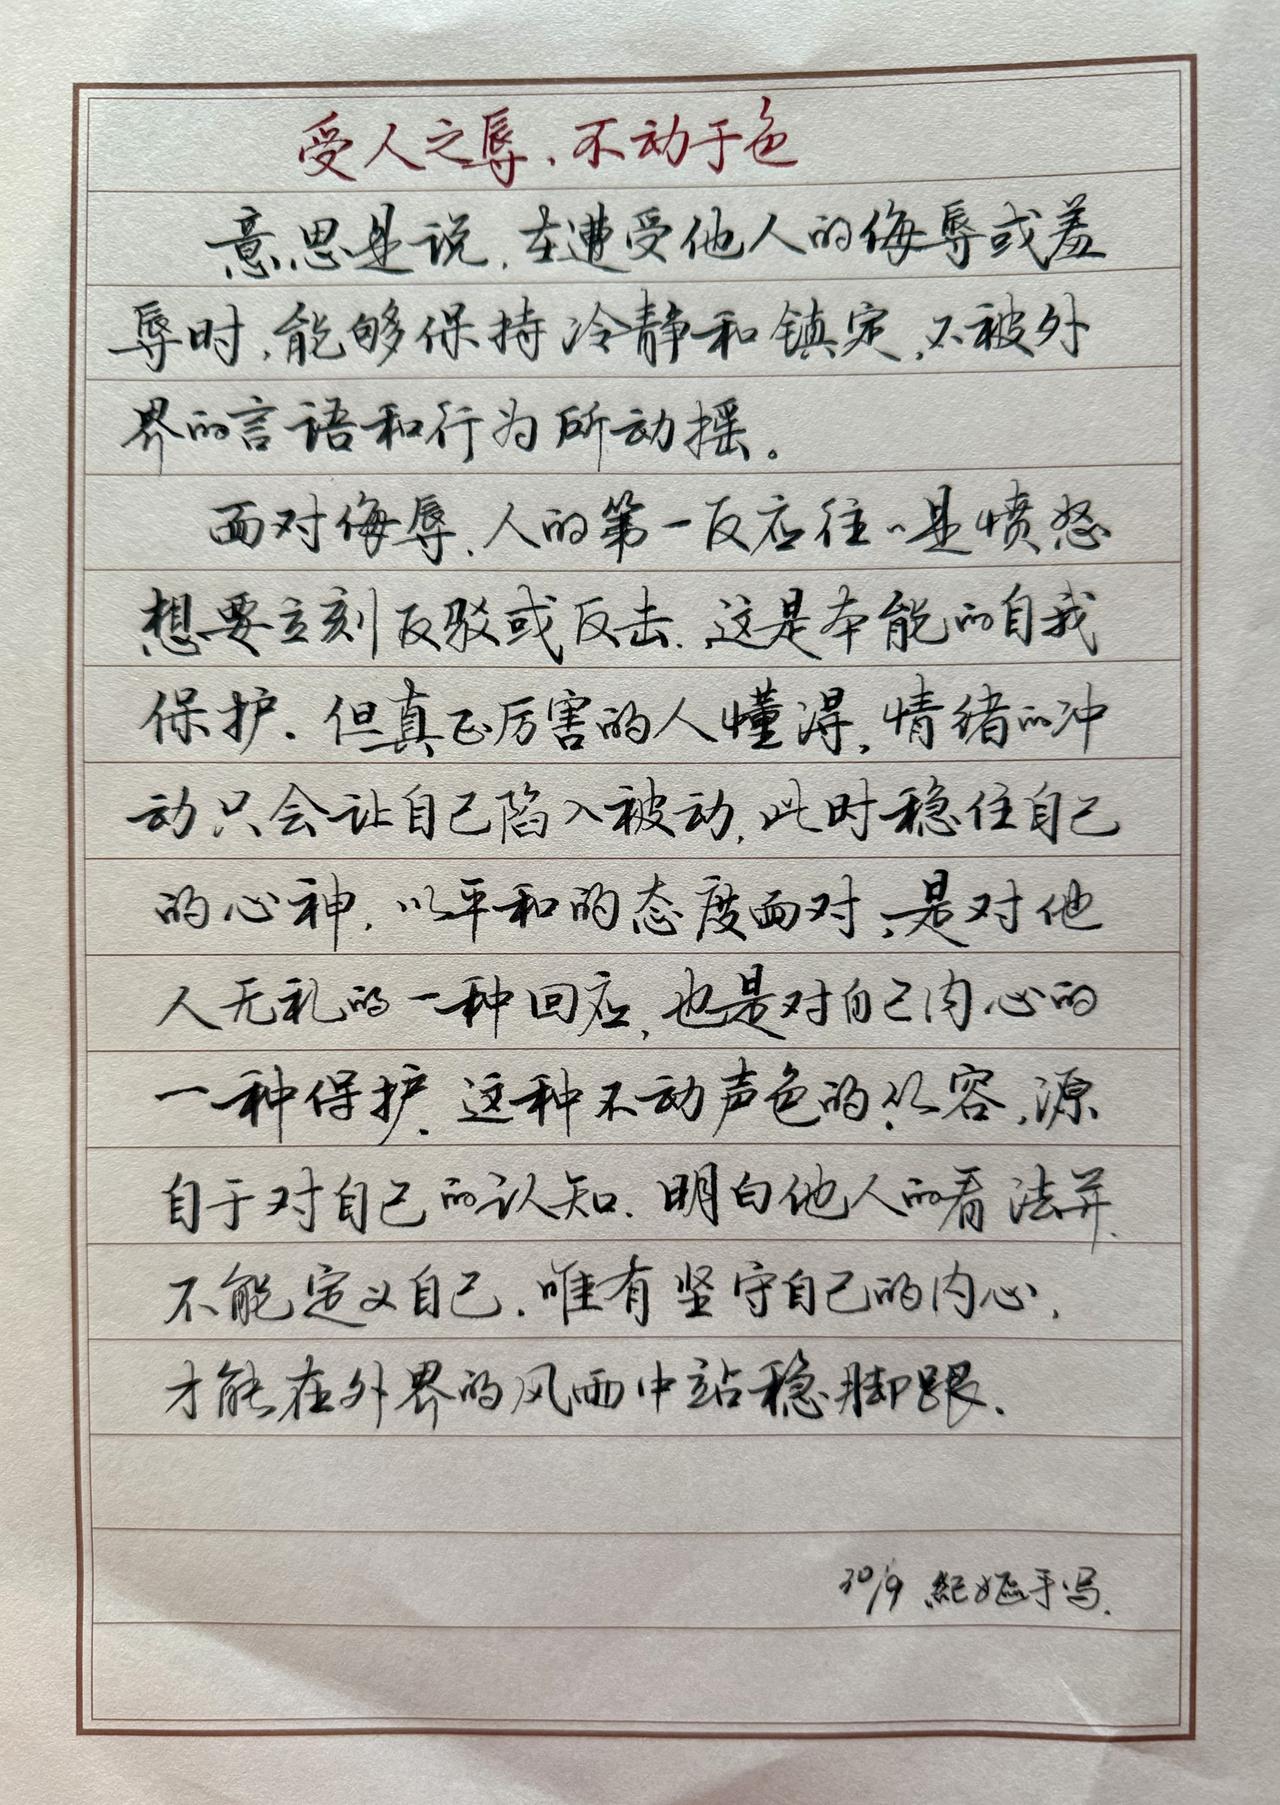 受人之辱、不动于色
意思是说,在遭受他人的侮辱或羞
辱时,能够保持冷静和镇定,不被外
界的言语和行为所动摇。
面对侮辱,人的第一反应往々是愤怒
想要立刻反驳或反击.这是本能的自我
保护.但真正厉害的人懂得,情绪的冲
动只会让自己陷入被动,此时稳住自己
的心神.以平和的态度面对,是对他
人无礼的一种回应,也是对自己内心的
一种保护.这种不动声色的从容,源
自于对自己的认知.明白他人的看法并
不能定义自己.唯有坚守自己的内心,
才能在外界的风雨中站稳脚跟.
30/9 紀嫗手写.